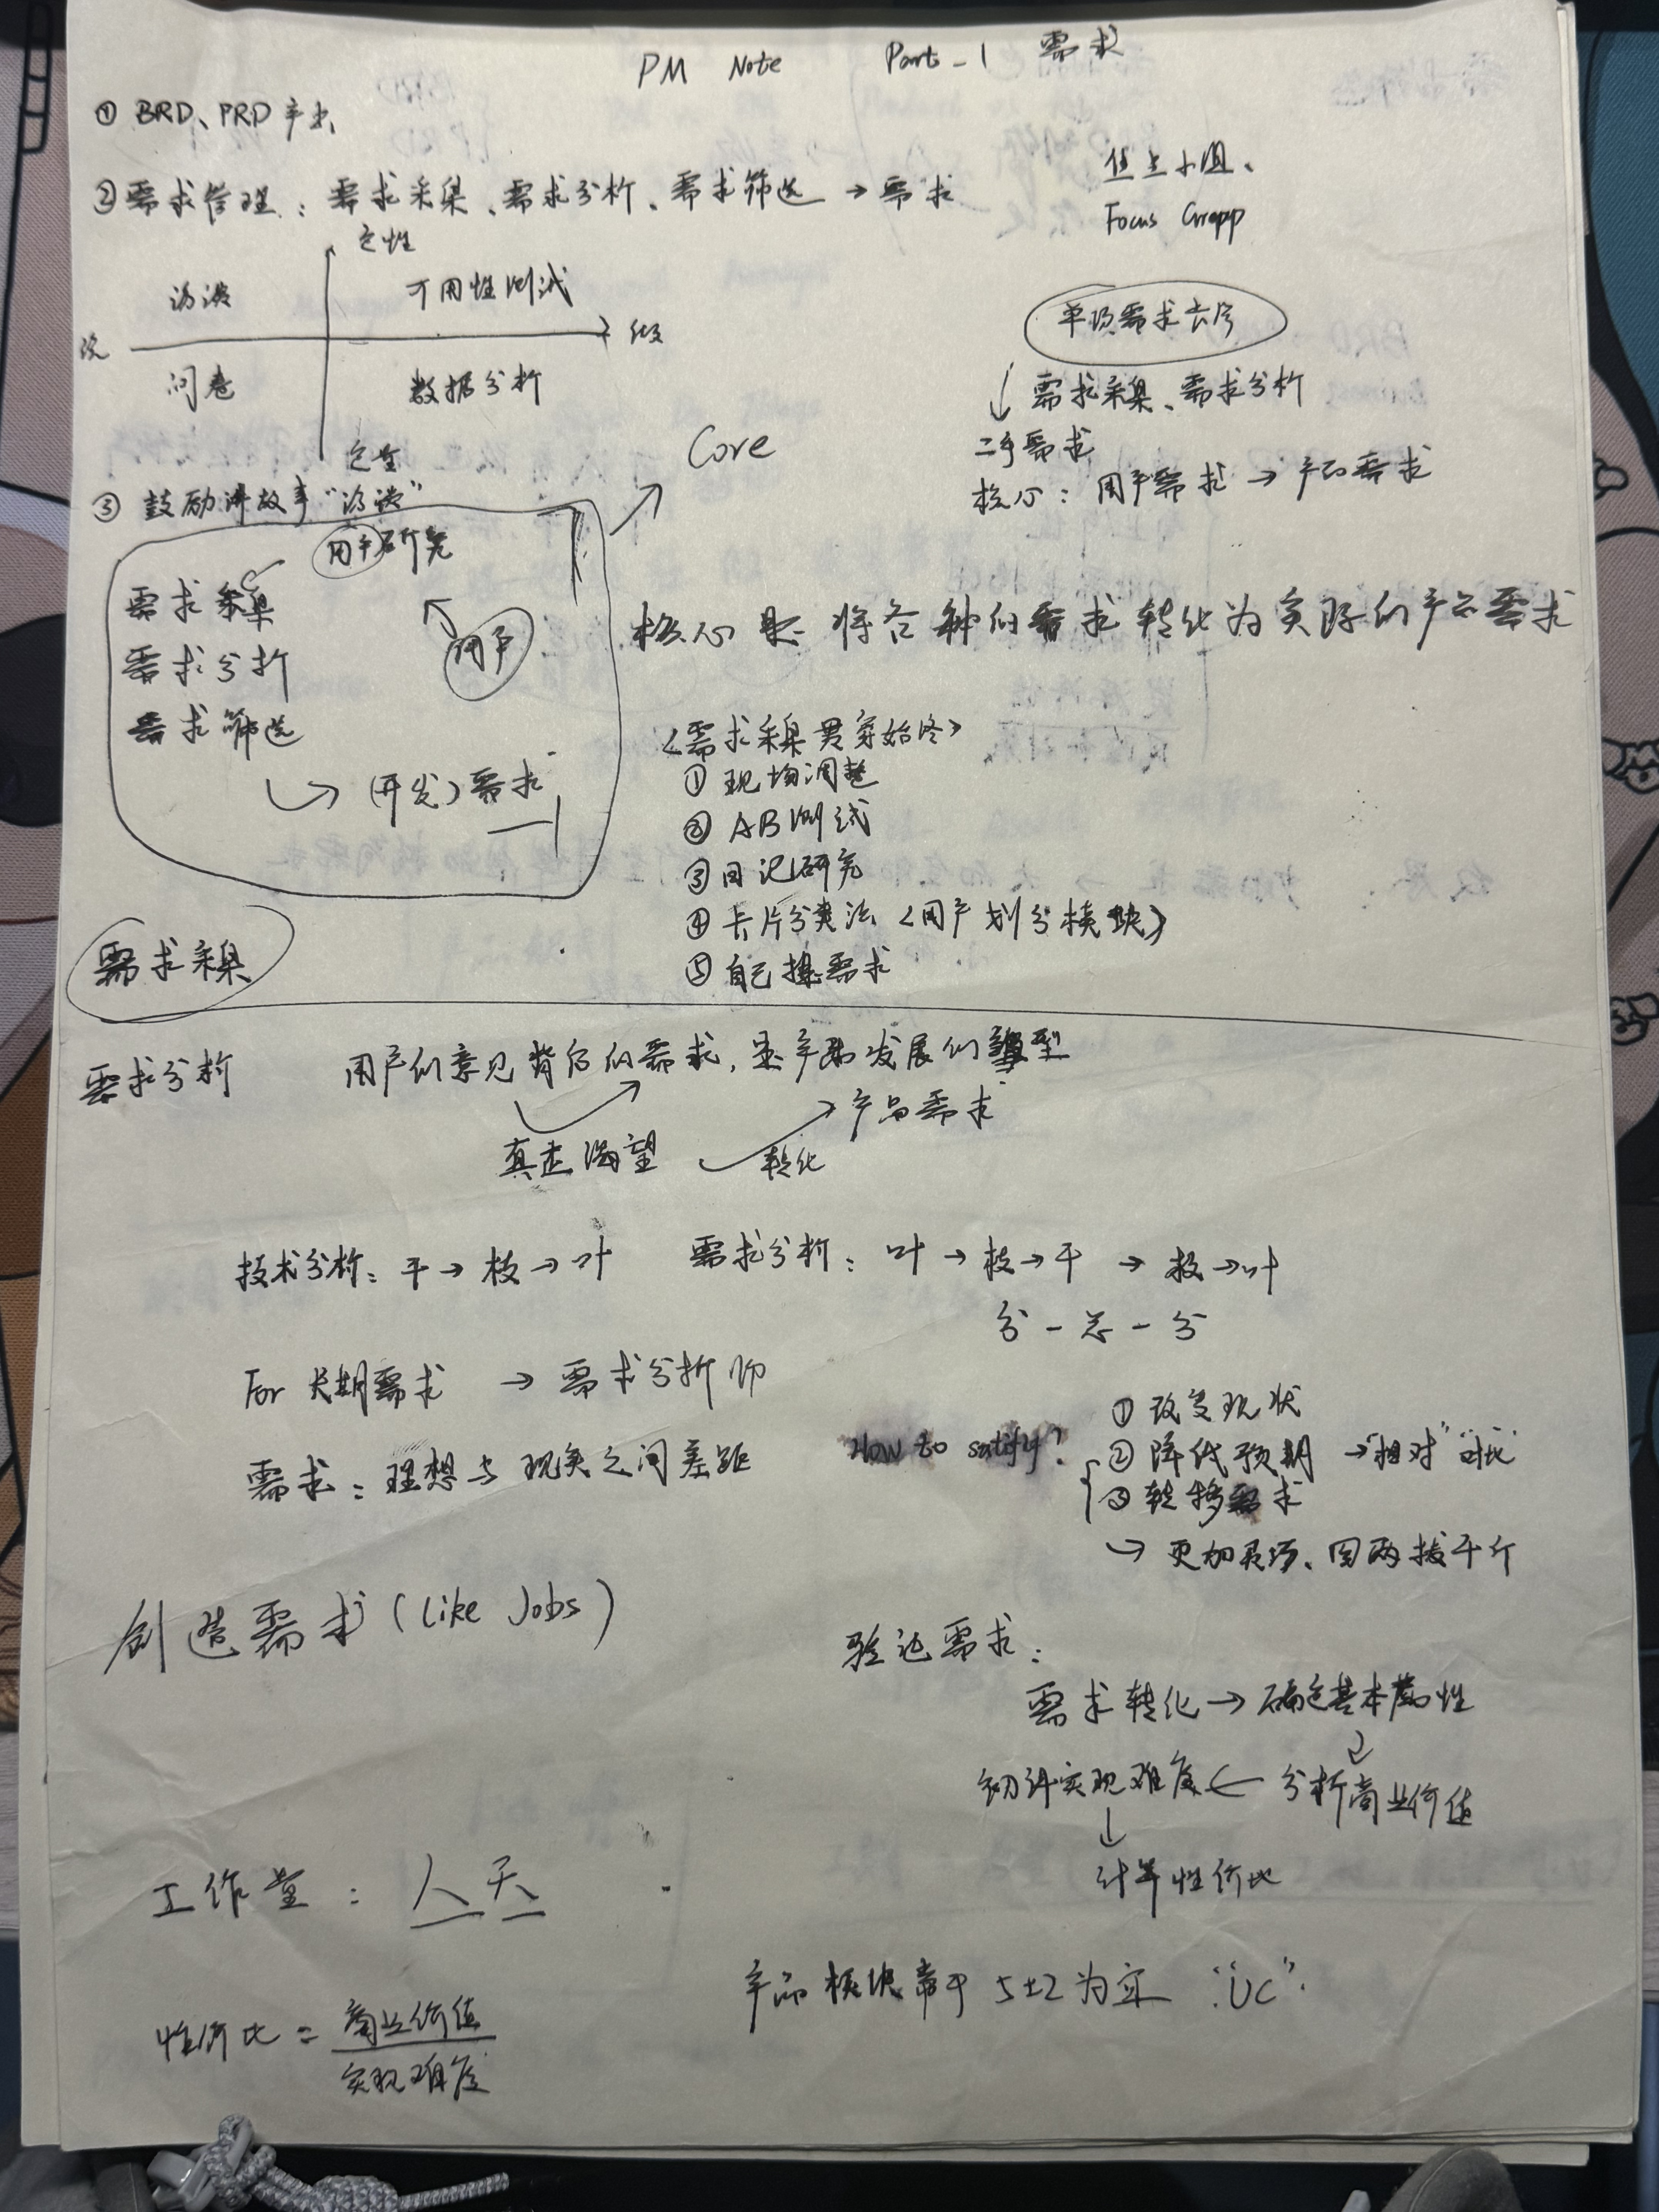 PM Note Part-1 需求
① BRD、PRD 产出
② 需求管理：需求采集、需求分析、需求筛选 → 需求
焦点小组、
Focus Group
定性
访谈 可用性测试
说 做
问卷 数据分析
定量
单项需求卡片
↓ 需求采集、需求分析
二手需求
核心：用户需求 → 产品需求
③ 鼓励讲故事“访谈”
Core
用户研究
需求采集
用户
需求分析
需求筛选
(开发) 需求
核心是 将各种的需求转化为实际的产品需求
<需求采集贯穿始终>
① 现场调整
② AB测试
③ 日记研究
④ 卡片分类法 <用户划分模块>
⑤ 自己提需求
需求采集
需求分析 用户的意见背后的需求，是产品发展的
真正渴望 转化 → 产品需求
技术分析：干 → 枝 → 叶
需求分析：叶 → 枝 → 干 → 枝 → 叶
分 - 总 - 分
For 长期需求 → 需求分析师
需求：理想与现实之间差距
How to satify?
① 改变现状
② 降低预期 → “相对” “对比”
③ 转移需求
→ 更加灵巧、四两拨千斤
创造需求 (Like Jobs)
验证需求：
需求转化 → 确定基本属性
初评实现难度 ← 分析商业价值
↓
计算性价比
工作量：人天
产品模块常于 5±2 为宜 “UC”.
性价比 = 商业价值
实现难度